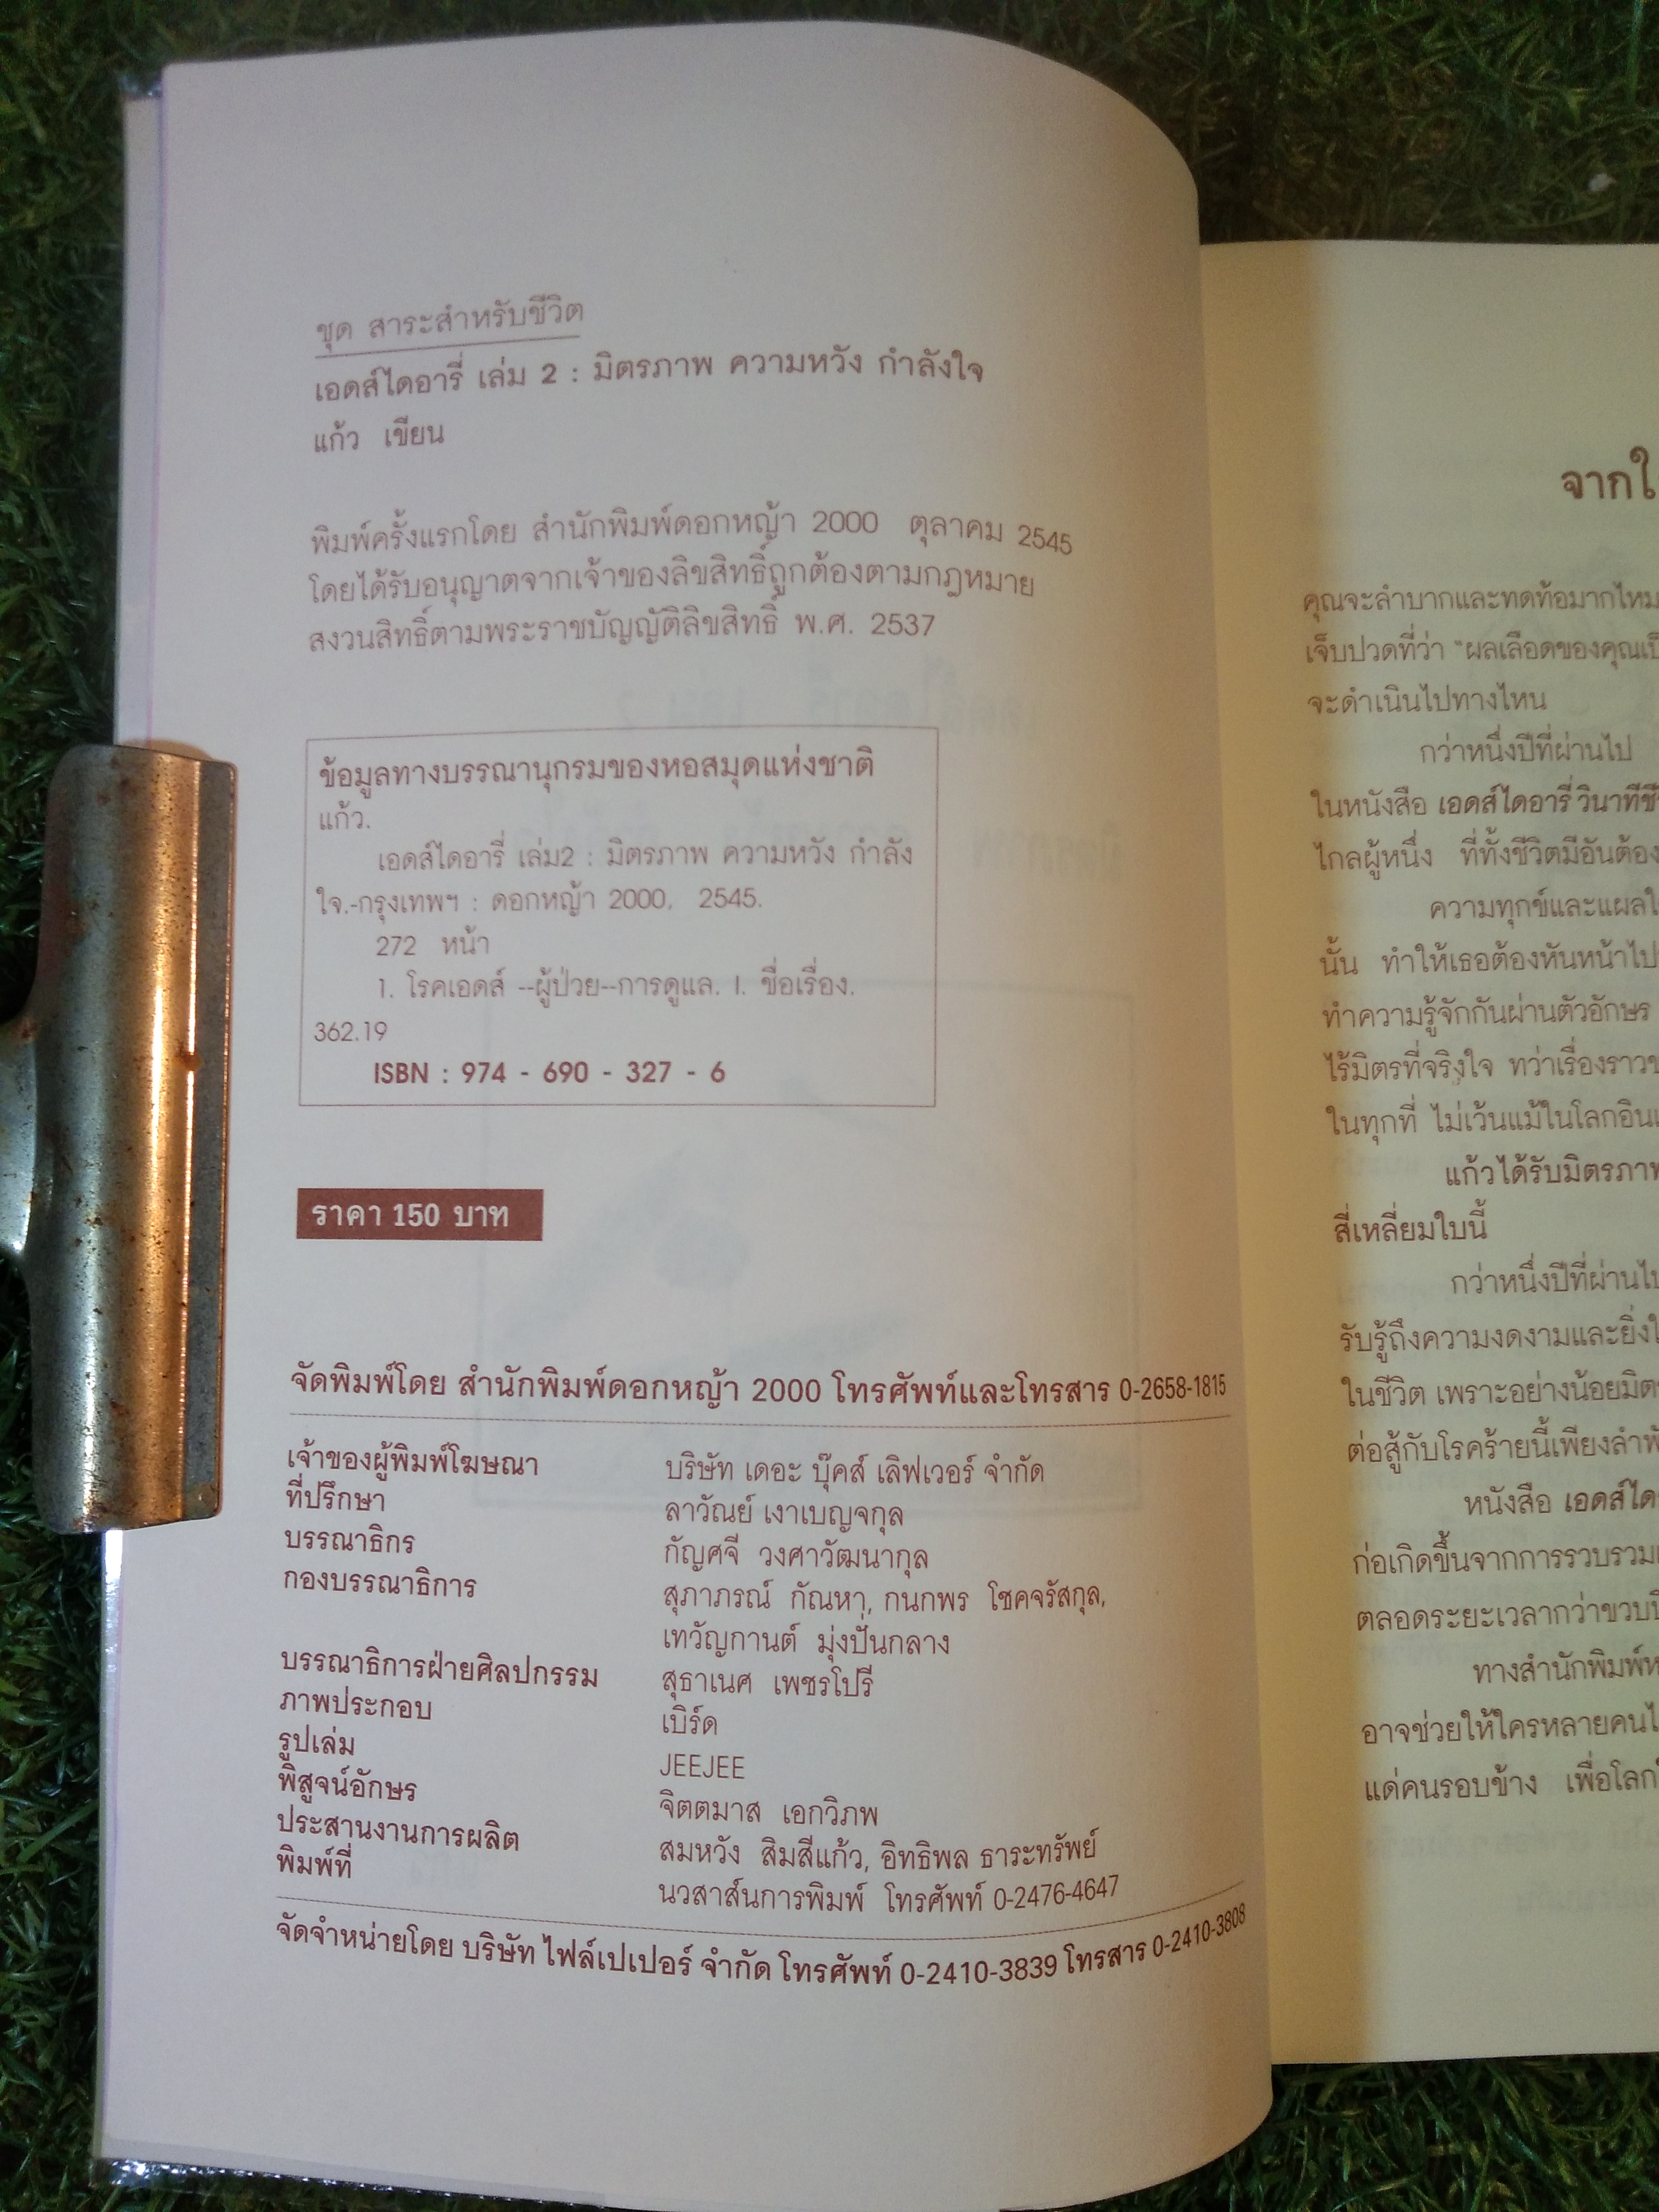 ชุด สาระสำหรับชีวิต
เอดส์ไดอารี่ เล่ม 2 : มิตรภาพ ความหวัง กำลังใจ
แก้ว เขียน
พิมพ์ครั้งแรกโดย สำนักพิมพ์ดอกหญ้า 2000 ตุลาคม 2545
โดยได้รับอนุญาตจากเจ้าของลิขสิทธิ์ถูกต้องตามกฎหมาย
สงวนสิทธิ์ตามพระราชบัญญัติลิขสิทธิ์ พ.ศ. 2537
ข้อมูลทางบรรณานุกรมของหอสมุดแห่งชาติ
แก้ว.
เอดส์ไดอารี่ เล่ม2 : มิตรภาพ ความหวัง กำลัง
ใจ.-กรุงเทพฯ : ดอกหญ้า 2000, 2545.
272 หน้า
1. โรคเอดส์ --ผู้ป่วย--การดูแล. I. ชื่อเรื่อง.
362.19
ISBN : 974 - 690 - 327 - 6
ราคา 150 บาท
จัดพิมพ์โดย สำนักพิมพ์ดอกหญ้า 2000 โทรศัพท์และโทรสาร 0-2658-1815
เจ้าของผู้พิมพ์โฆษณา บริษัท เดอะ บุ๊คส์ เลิฟเวอร์ จำกัด
ที่ปรึกษา ลาวัณย์ เงาเบญจกุล
บรรณาธิกร กัญศจี วงศาวัฒนากุล
กองบรรณาธิการ สุภาภรณ์ กัณหา, กนกพร โชคจรัสกุล,
เทวัญกานต์ มุ่งปั่นกลาง
บรรณาธิการฝ่ายศิลปกรรม สุธาเนศ เพชรโปรี
ภาพประกอบ เบิร์ด
รูปเล่ม JEEJEE
พิสูจน์อักษร จิตตมาส เอกวิภพ
ประสานงานการผลิต สมหวัง สิมสีแก้ว, อิทธิพล ธาระทรัพย์
พิมพ์ที่ นวสาส์นการพิมพ์ โทรศัพท์ 0-2476-4647
จัดจำหน่ายโดย บริษัท ไฟล์เปเปอร์ จำกัด โทรศัพท์ 0-2410-3839 โทรสาร 0-2410-3808
จากใ
คุณจะลำบากและทดท้อมากไหม
เจ็บปวดที่ว่า "ผลเลือดของคุณเป็
จะดำเนินไปทางไหน
กว่าหนึ่งปีที่ผ่านไป
ในหนังสือ เอดส์ไดอารี่ วินาทีชี
ไกลผู้หนึ่ง ที่ทั้งชีวิตมีอันต้อง
ความทุกข์และแผลใ
นั้น ทำให้เธอต้องหันหน้าไป
ทำความรู้จักกันผ่านตัวอักษร
ไร้มิตรที่จริงใจ ทว่าเรื่องราวข
ในทุกที่ ไม่เว้นแม้ในโลกอินเ
แก้วได้รับมิตรภาพ
สี่เหลี่ยมใบนี้
กว่าหนึ่งปีที่ผ่านไป
รับรู้ถึงความงดงามและยิ่งใ
ในชีวิต เพราะอย่างน้อยมิต
ต่อสู้กับโรคร้ายนี้เพียงลำพั
หนังสือ เอดส์ไดอ
ก่อเกิดขึ้นจากการรวบรวมเ
ตลอดระยะเวลากว่าขวบปี
ทางสำนักพิมพ์ห
อาจช่วยให้ใครหลายคนไ
แด่คนรอบข้าง เพื่อโลกใ